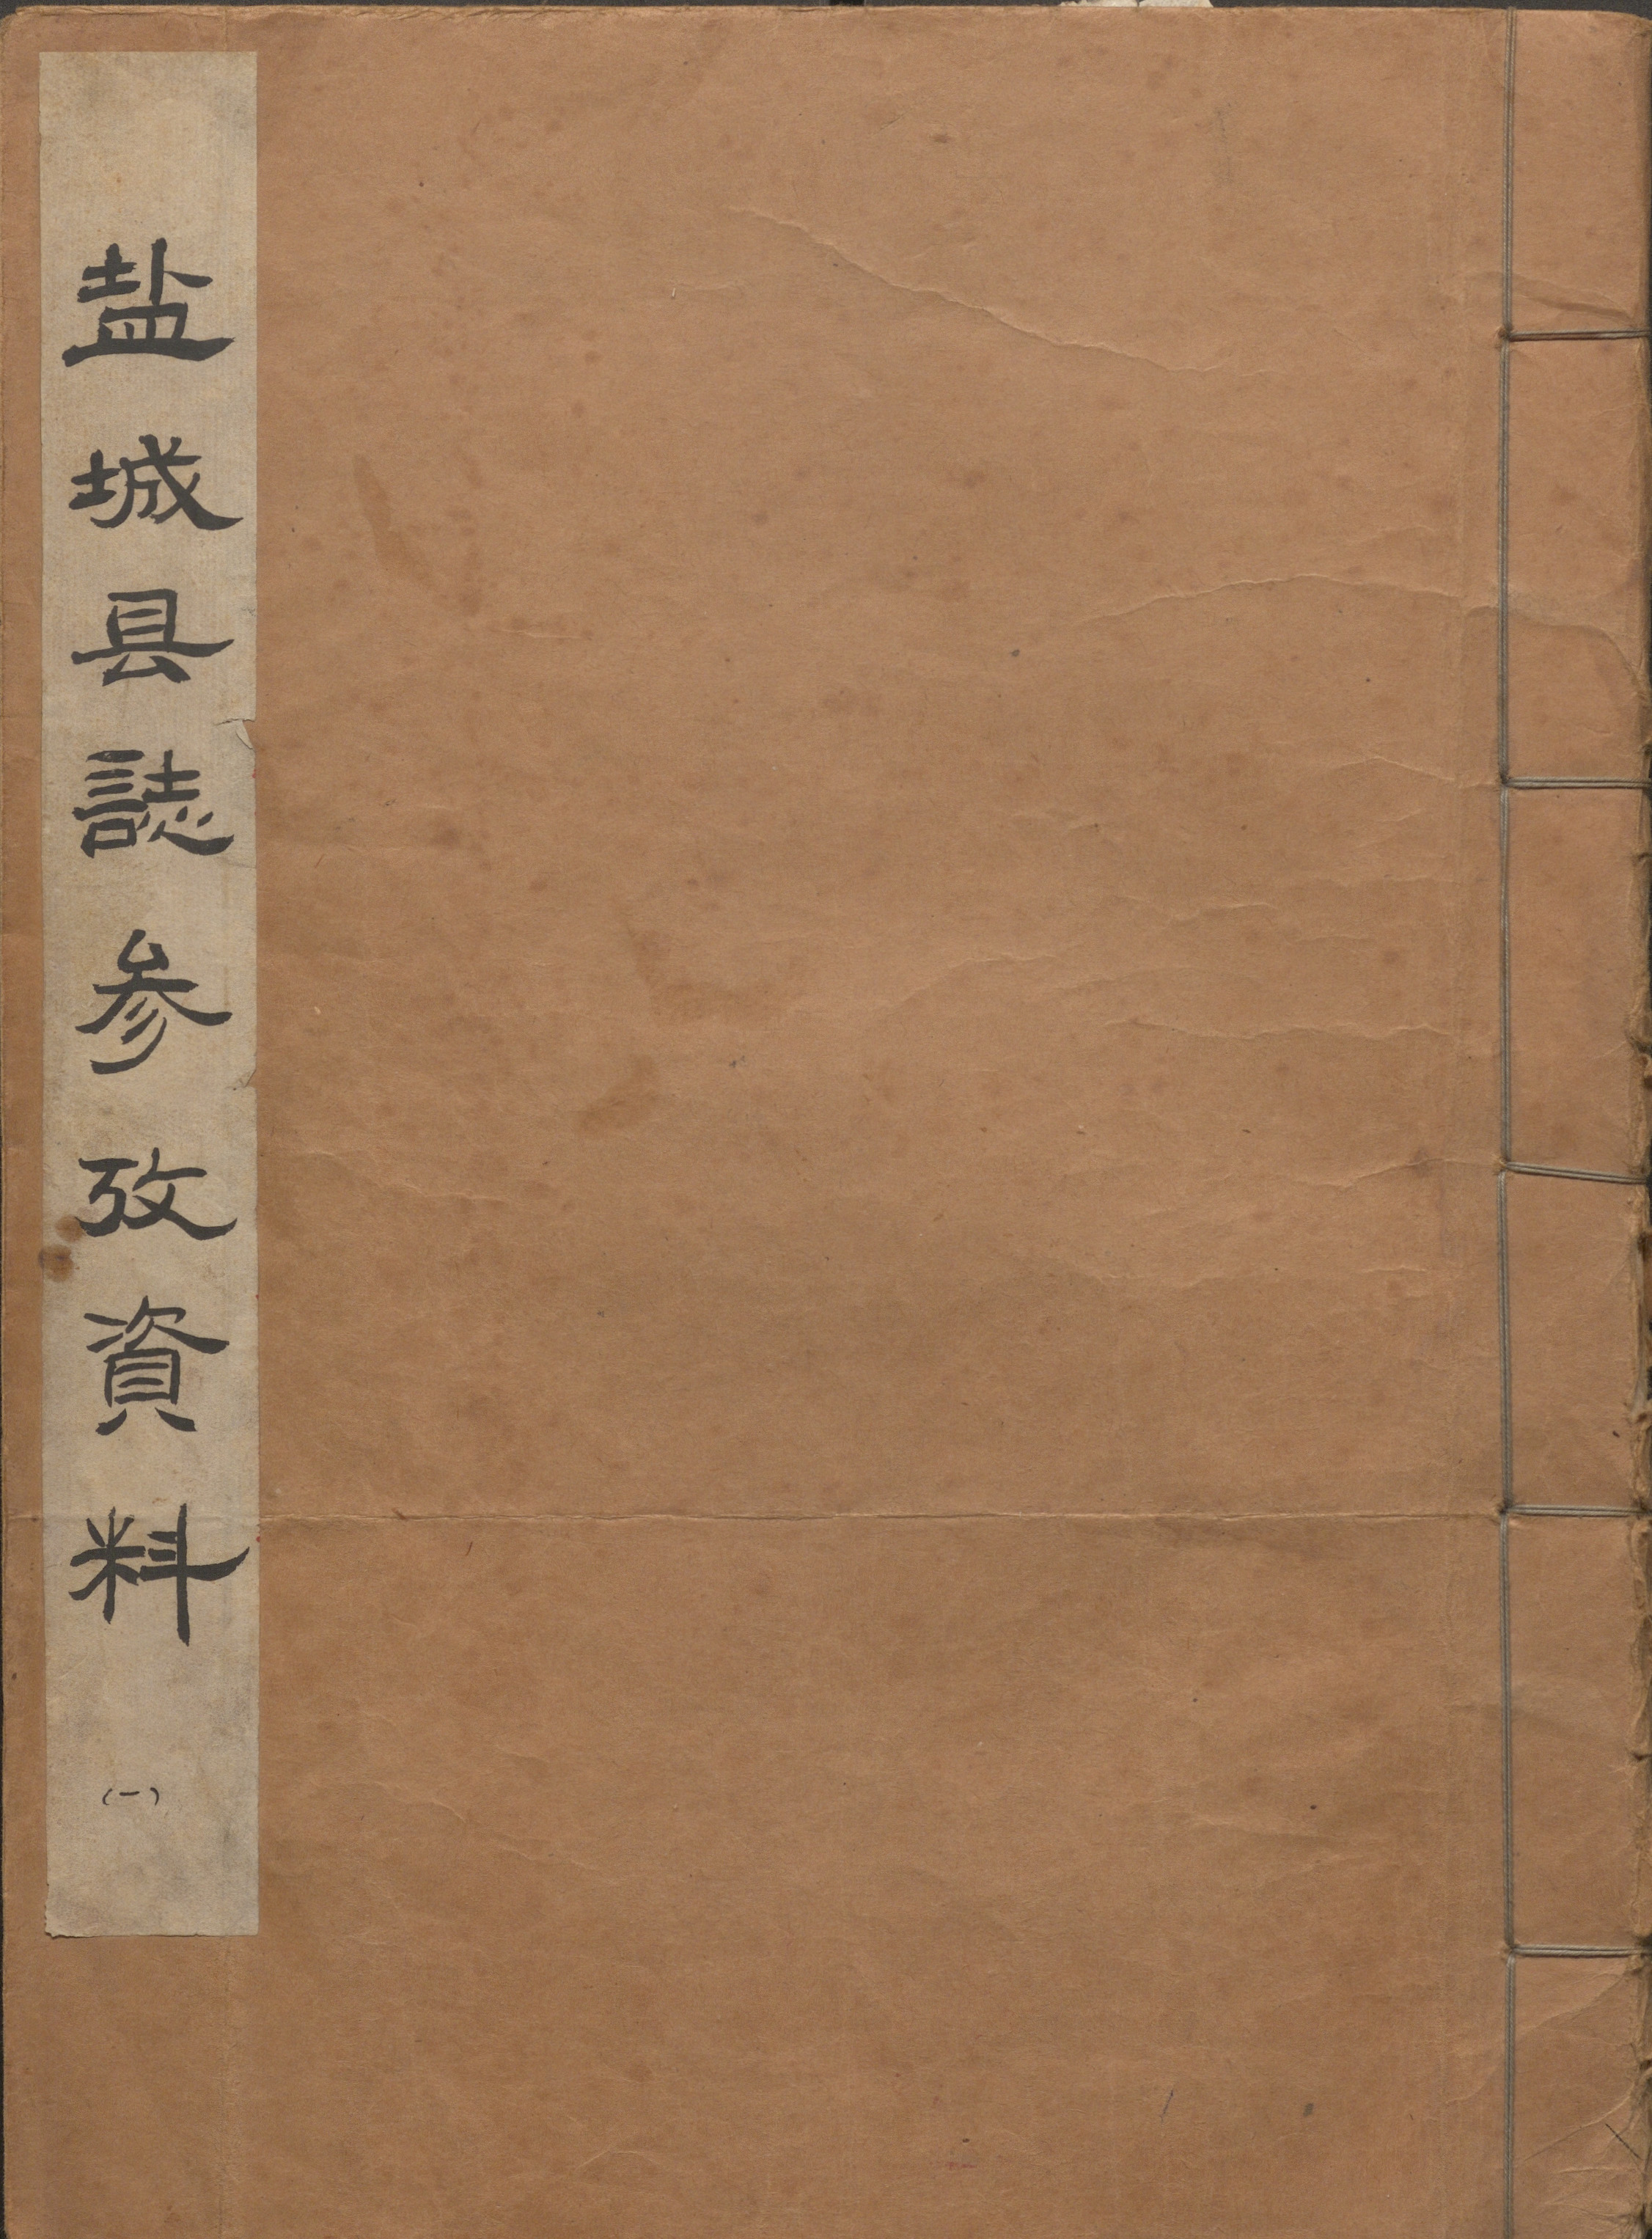 盐城县誌参攷資料
(一)